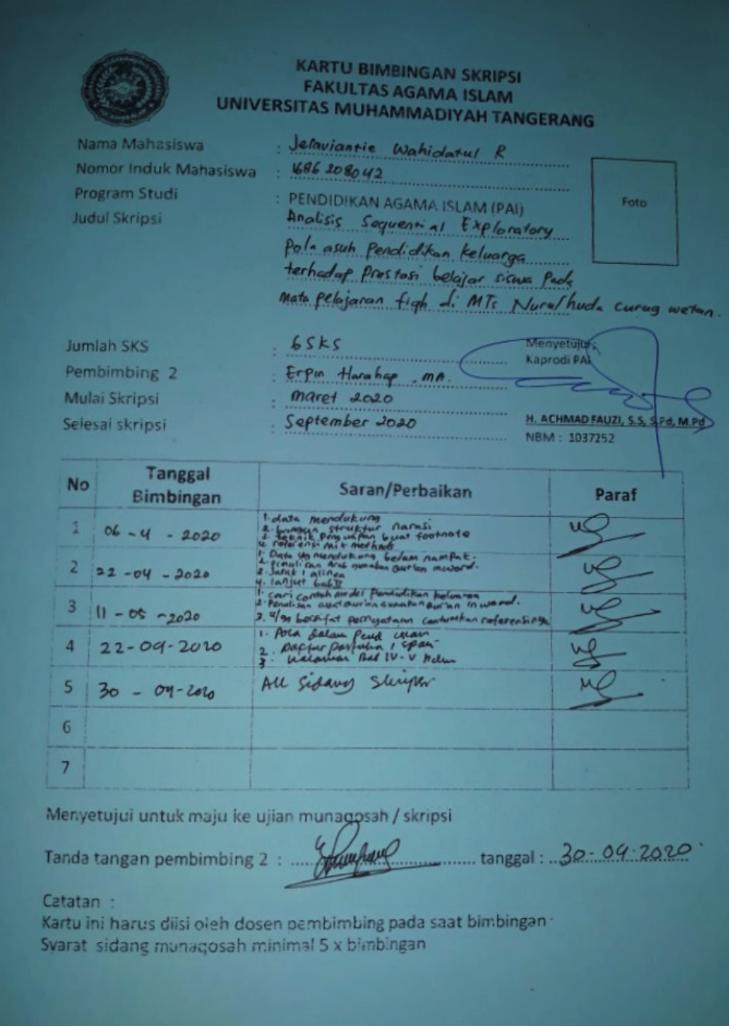 KARTU BIMBINGAN SKRIPSI
FAKULTAS AGAMA ISLAM
UNIVERSITAS MUHAMMADIYAH TANGERANG
Nama Mahasiswa : Jeraviantie Wahidatul R
Nomor Induk Mahasiswa : 1686208042
Program Studi : PENDIDIKAN AGAMA ISLAM (PAI)
Judul Skripsi : Analisis Sequential Exploratory
Pola asuh Pendidikan keluarga
terhadap prestasi belajar siswa pada
mata pelajaran fiqh di MTs Nurul huda curug wetan.
Foto
Jumlah SKS : 6 SKS
Pembimbing 2 : Erpin Harahap, MA.
Mulai Skripsi : Maret 2020
Selesai skripsi : September 2020
Menyetujui,
Kaprodi PAI
H. ACHMAD FAUZI, S.S, S.Pd, M.Pd
NBM : 1037252
No Tanggal Bimbingan Saran/Perbaikan Paraf
1 06 - 4 - 2020
1. data mendukung
2. struktur narasi
3. buat footnote
4. referensi
2 22 - 04 - 2020
1. Data yg mendukung belum nampak.
4. lanjut bab
3 11 - 05 - 2020
1. cari contoh model pendidikan keluarga
4 22 - 09 - 2020
1. Pola dalam
2. Daftar pustaka 1 spasi
3. Halaman Bab IV - V
5 30 - 09 - 2020 Acc Sidang Skripsi
6
7
Menyetujui untuk maju ke ujian munaqosah / skripsi
Tanda tangan pembimbing 2 : tanggal : 30 - 09 - 2020
Catatan :
Kartu ini harus diisi oleh dosen pembimbing pada saat bimbingan
Syarat sidang munaqosah minimal 5 x bimbingan